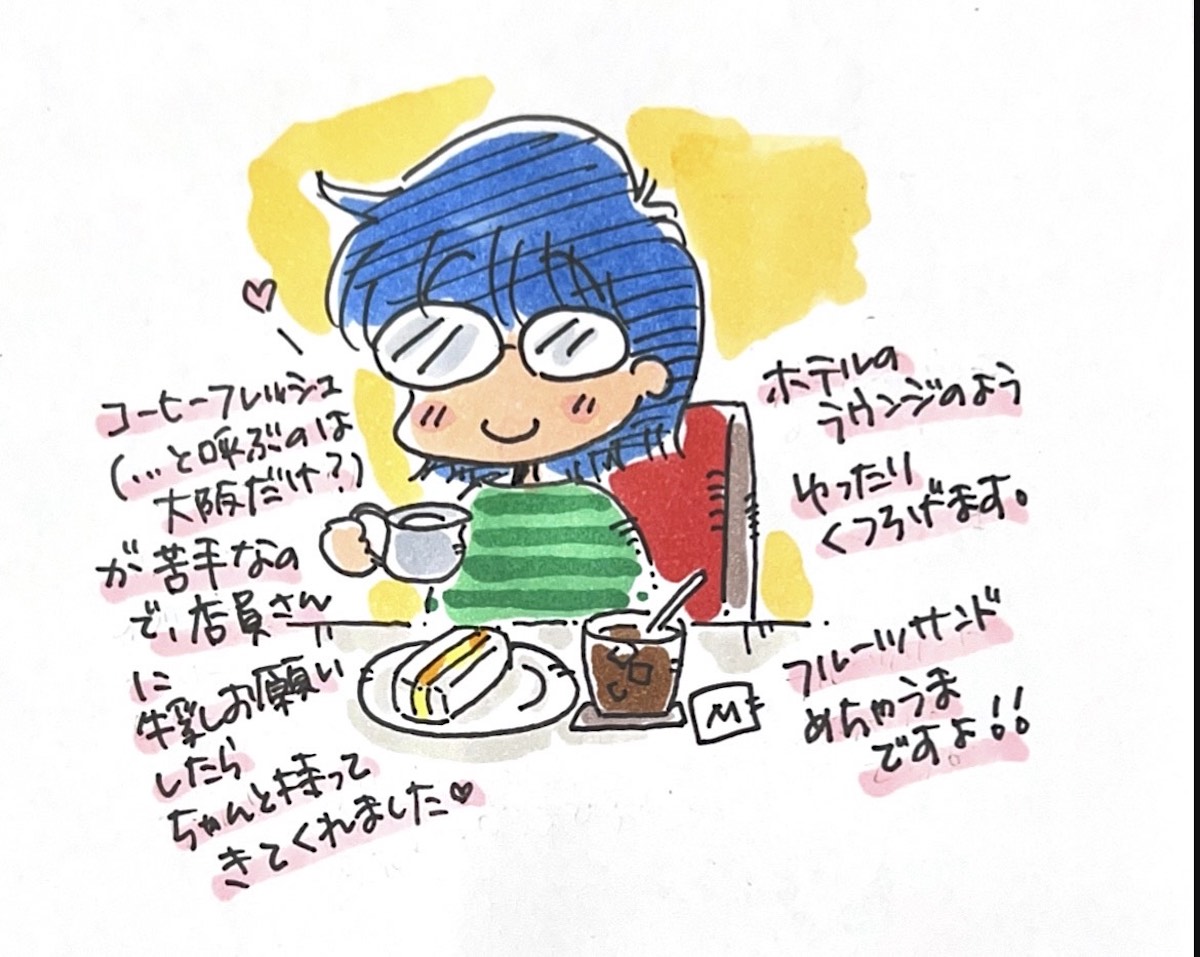 コーヒーフレッシュ
(…と呼ぶのは
大阪だけ?)
が苦手なの
で、店員さん
に
牛乳しお願い
したら
ちゃんと持って
きてくれました♥
ホテルの
ラウンジのよう
ゆったり
くつろげます。
フルーツサンド
めちゃうま
ですよ!!
M